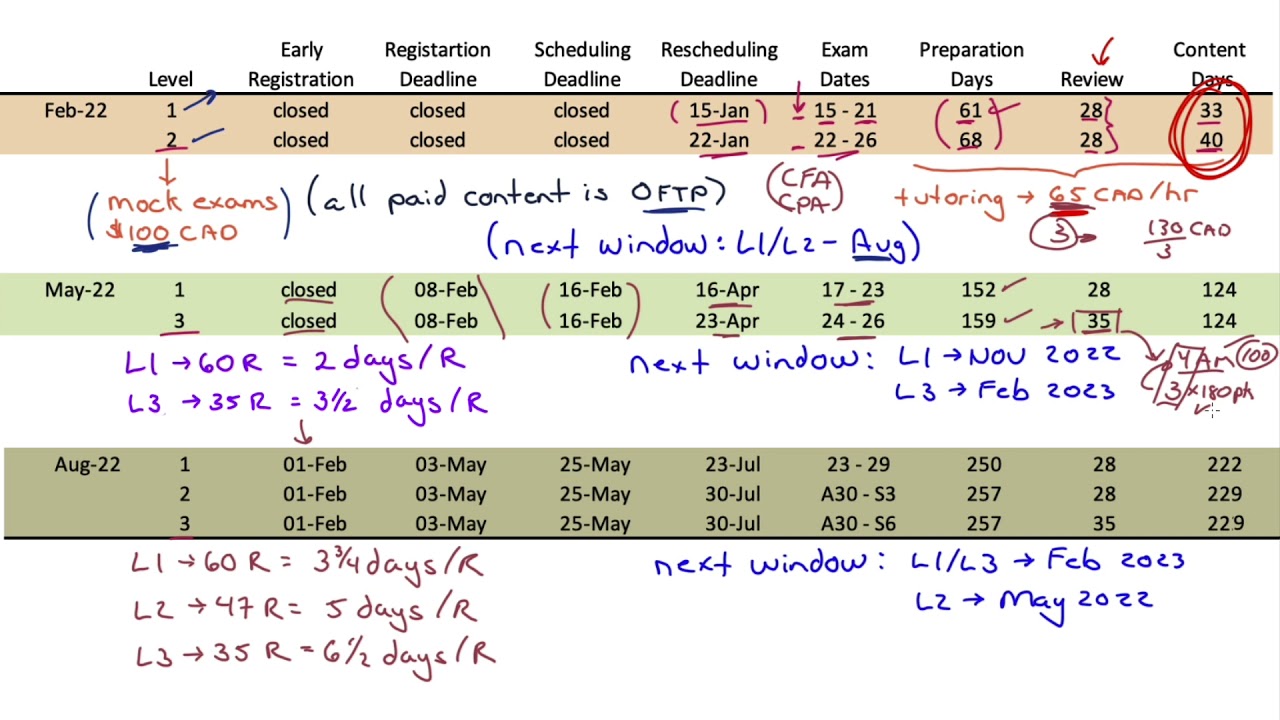 Early Registartion Scheduling Rescheduling Exam Preparation Content
Level Registration Deadline Deadline Deadline Dates Days Review Days
Feb-22 1 closed closed closed (15-Jan) 15 - 21 (61 28} 33
2 closed closed closed 22-Jan 22 - 26 68) 28} 40
(mock exams) (all paid content is OFTP) (CFA) tutoring → 65 CAD/hr
$100 CAD CPA 3 130 CAD
3
(next window: L1/L2 - Aug)
May-22 1 closed 08-Feb 16-Feb 16-Apr 17 - 23 152 28 124
3 closed 08-Feb 16-Feb 23-Apr 24 - 26 159 → 35 124
L1 → 60 R = 2 days/R next window: L1 → Nov 2022 4 AM 100
L3 → 35 R = 3 1/2 days/R L3 → Feb 2023 3 × 180
Aug-22 1 01-Feb 03-May 25-May 23-Jul 23 - 29 250 28 222
2 01-Feb 03-May 25-May 30-Jul A30 - S3 257 28 229
3 01-Feb 03-May 25-May 30-Jul A30 - S6 257 35 229
L1 → 60 R = 3 3/4 days/R next window: L1/L3 → Feb 2023
L2 → 47 R = 5 days/R L2 → May 2022
L3 → 35 R = 6 1/2 days/R